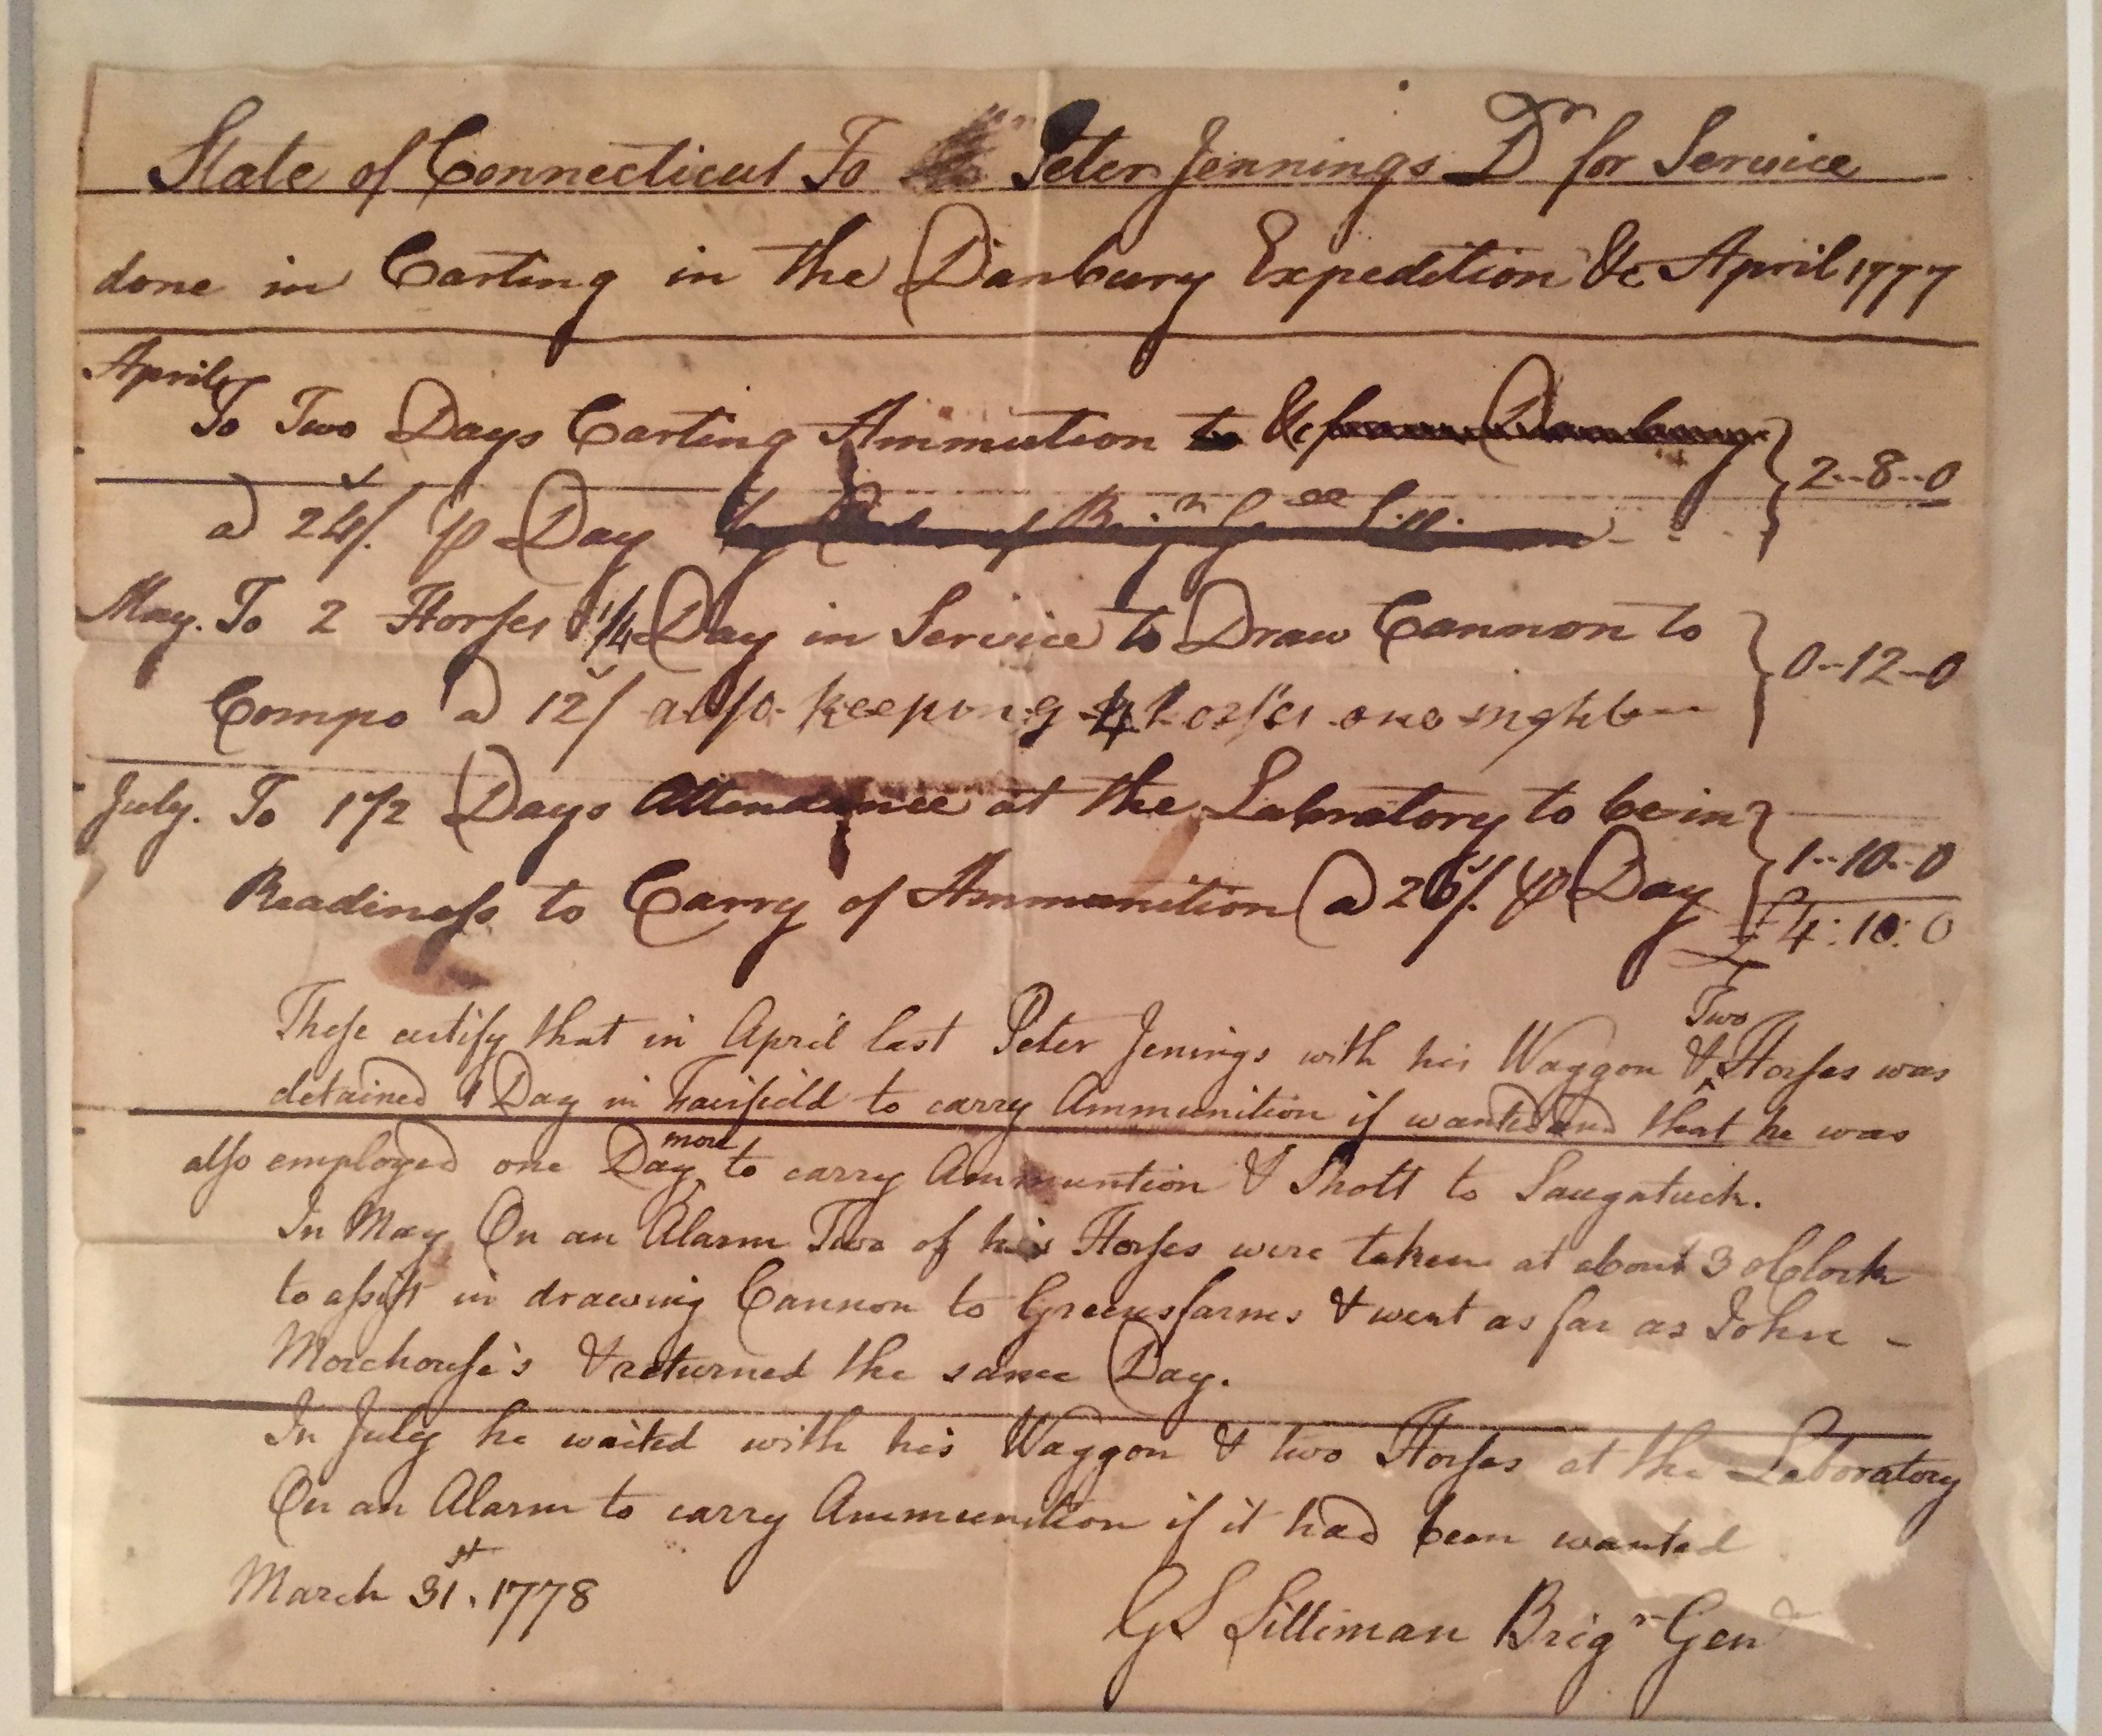 State of Connecticut To Peter Jennings Dr for Service
done in Carting in the Danbury Expedition &c April 1777
April
To Two Days Carting Ammution to &c from Danbury
a 24/. p Day by Order of Brigr Genll Silliman
2--8--0
May. To 2 Horses 1/4 Day in Service to Draw Cannon to
Compo a 12/ also keeping 4 horses one night
0--12--0
July. To 1 1/2 Days Attendence at the Labratory to be in
Readiness to Carry of Ammunition a 20/. p Day
1--10--0
£4:10:0
These certify that in April last Peter Jenings with his Waggon & Two Horses was
detained 1 Day in Fairfield to carry Ammunition if wanted and that he was
also employed one Day more to carry Ammuntion & Shott to Saugatuck.
In May On an Alarm Two of his Horses were taken at about 3 oClock
to assist in drawing Cannon to Greensfarms & went as far as John -
Morehouse's & returned the same Day.
In July he waited with his Waggon & two Horses at the Laboratory
On an Alarm to carry Ammunition if it had been wanted
March 31st. 1778
GS Silliman Brigr Gen